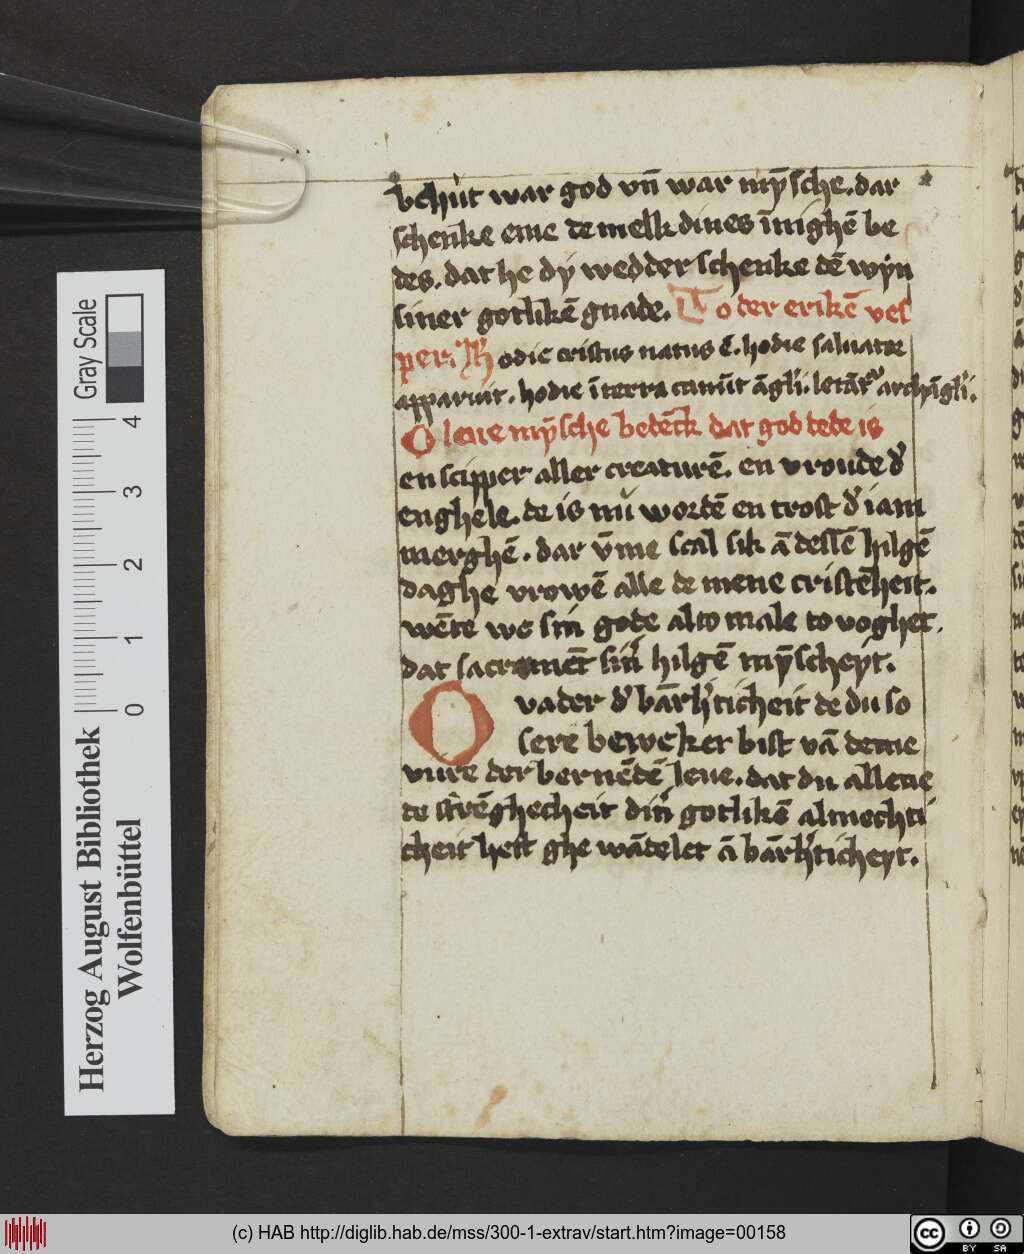 behut war god vn̄ war mȳsche. dar
schenke eme de melk dines īnighē be
des. dat he dy wedder schenke dē wyn
siner gotlikē gnade. To der erikē ves
per. A᷑ hodie cristus natus ē. hodie saluator
apparuit. hodie ī terra canūt āgli. letāt᷑ archāgli.
O leue mȳsche betēck dat god tede is
en scipper aller creaturē. en vroude d᷑
enghele. de is nu wordē en trost d᷑ iam
merghē. dar v̄me scal sik ā dessē hilgē
daghe vrowē alle de mene cristēheit.
wēte we sin gode alto male to voghet.
dat sacramēt sin᷑ hilgē mȳscheyt.
O vader d᷑ bārh᷑ticheit de du so
sere beweket bist vā deme
vure der bernēdē leue. dat du allene
de strēghecheit din᷑ gotlikē almechti
cheit hest ghe wādelet ā bārh᷑ticheyt.
Gray Scale
0 1 2 3 4
Herzog August Bibliothek
Wolfenbüttel
(c) HAB http://diglib.hab.de/mss/300-1-extrav/start.htm?image=00158
cc BY SA